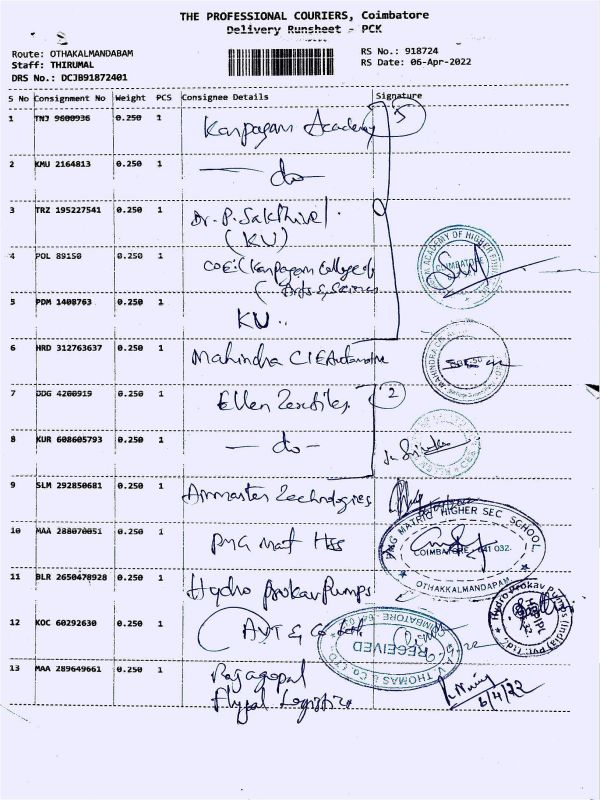 THE PROFESSIONAL COURIERS, Coimbatore
Delivery Runsheet - PCK
Route: OTHAKALMANDABAM
Staff: THIRUMAL
DRS No.: DCJB91872401
RS No.: 918724
RS Date: 06-Apr-2022
S No Consignment No Weight PCS Consignee Details Signature
1 TNJ 9600936 0.250 1 Karpagam Academy 5
2 KMU 2164813 0.250 1 - do -
3 TRZ 195227541 0.250 1 Dr. P. Sakthivel.
(KU)
4 POL 89150 0.250 1 COE: (Karpagam College of
Arts & Science
ACADEMY OF HIGHER
COIMBATORE
5 PDM 1408763 0.250 1 KU ..
6 HRD 312763637 0.250 1 Mahindra CIE Automotive
MAHINDRA CIE
7 DDG 4200919 0.250 1 Ellen Textiles 2
8 KUR 608605793 0.250 1 - do -
9 SLM 292850681 0.250 1 Ammaster Technologies
10 MAA 288070051 0.250 1 PMG Mat HSS
PMG MATRIC HIGHER SEC SCHOOL
COIMBATORE - 641 032.
OTHAKKALMANDAPAM
11 BLR 2650478928 0.250 1 Hydro Prokav Pumps
Hydro Prokav Pumps (India) Pvt. Ltd.
12 KOC 60292630 0.250 1 AVT & Co Ltd
RECEIVED
A.V. THOMAS & CO LTD.
COIMBATORE
13 MAA 289649661 0.250 1 Rajagopal
Flyjal Logistics
6/4/22